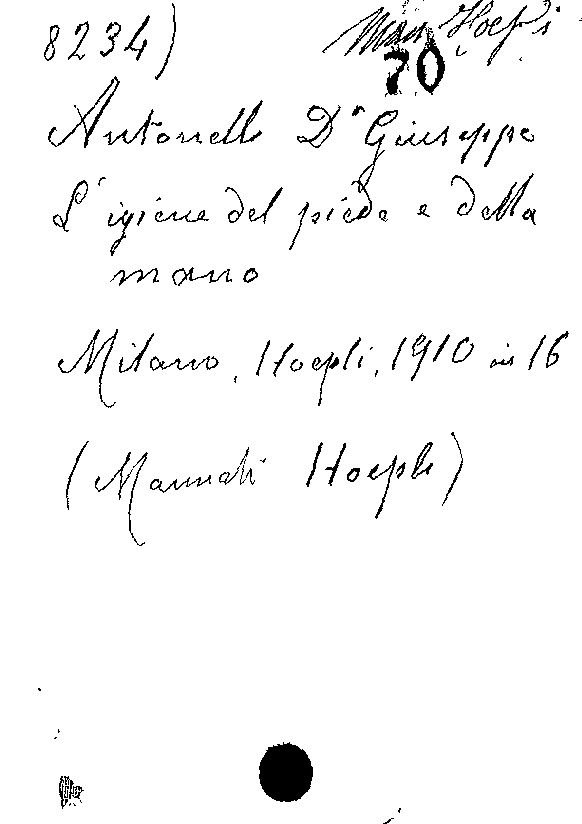 8234) Man. Hoepli
70
Antonelli Dr Giuseppe
L'igiene del piede e della
mano
Milano, Hoepli, 1910 in 16
(Manuali Hoepli)